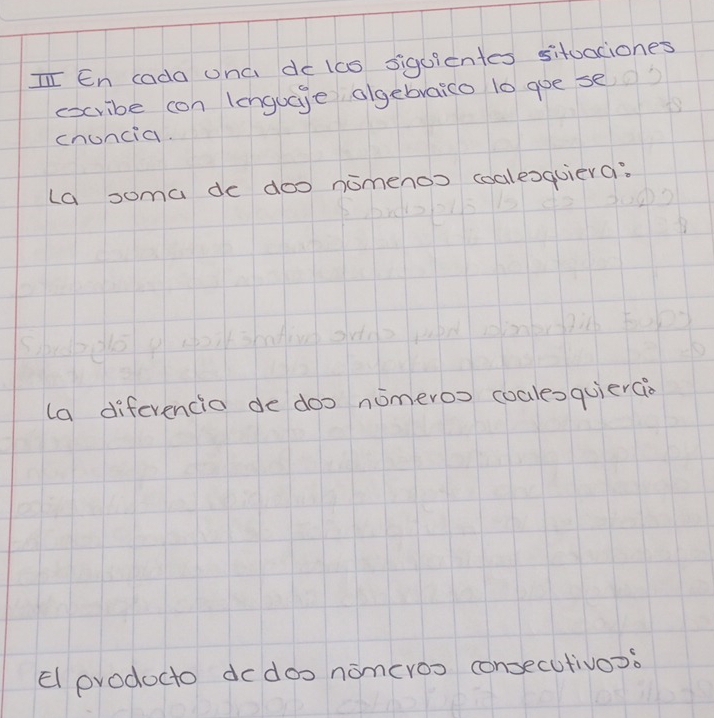 III En cada una de las siguientes situaciones
escribe con lenguaje algebraico lo que se
enuncia.
La suma de dos númenos cualesquiera:
La diferencia de dos números cualesquiera:
El producto de dos números consecutivos: